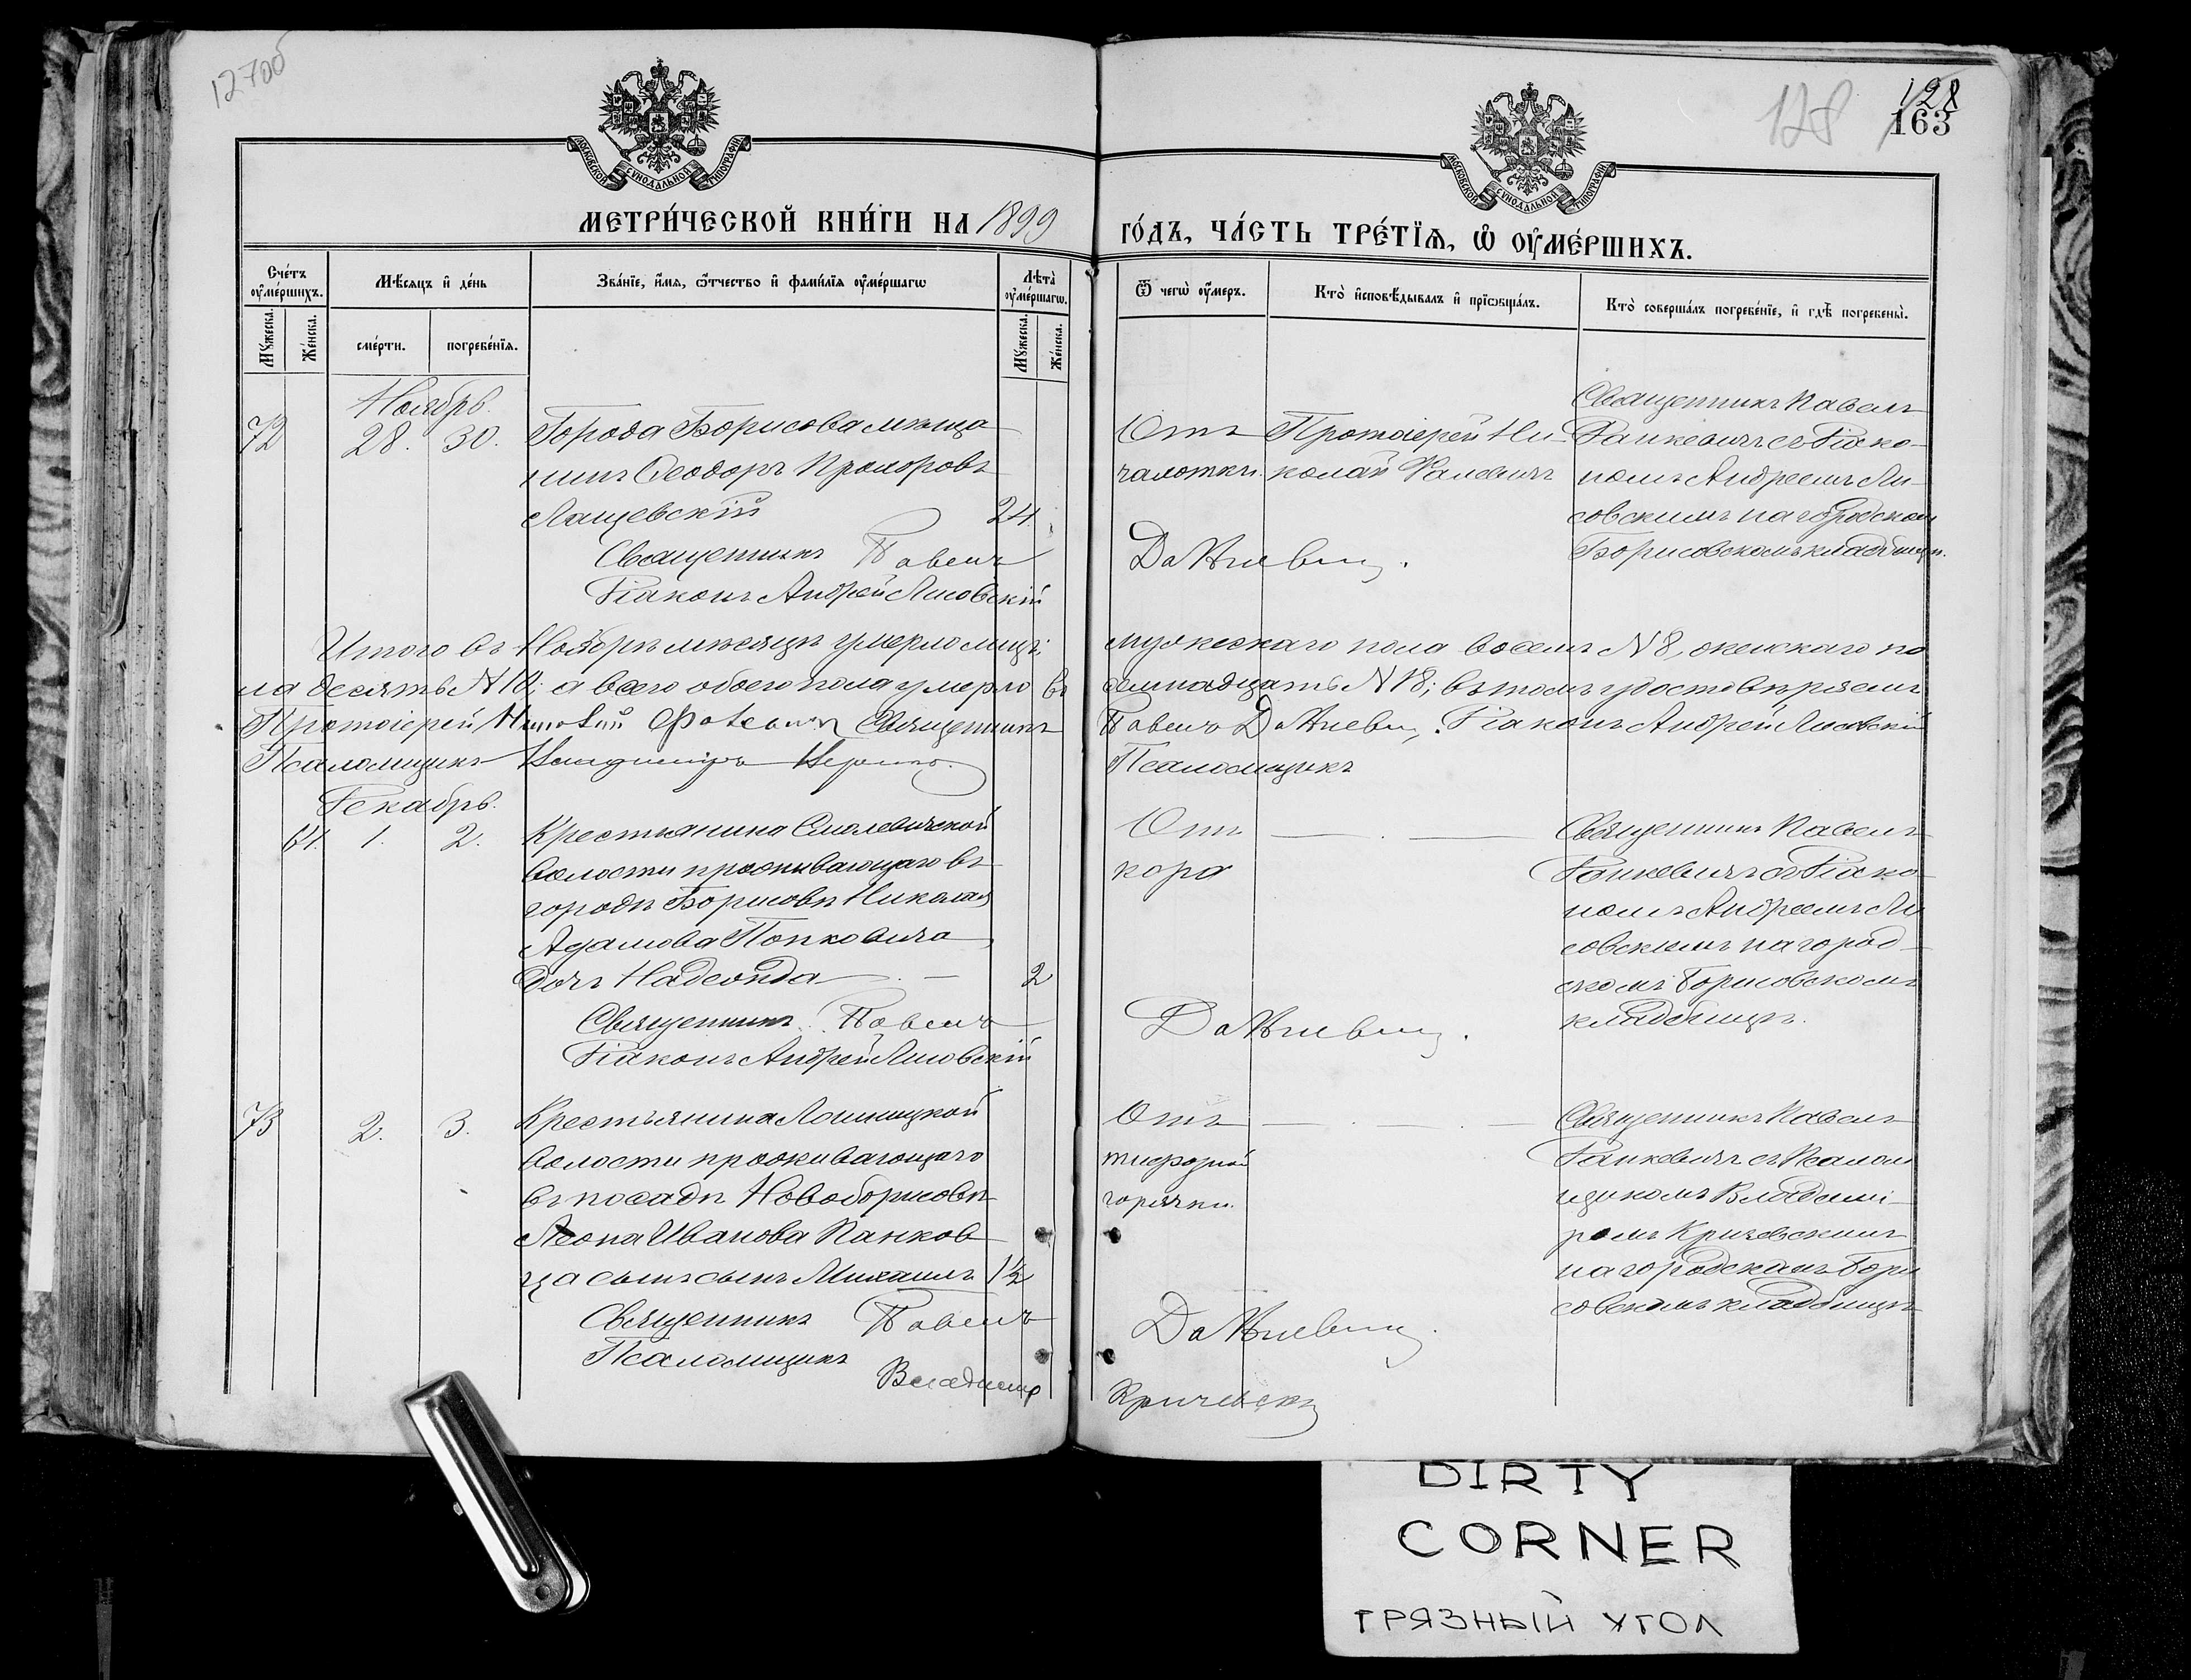 127об
128
128
163
МОСКОВСКОЙ СѴНОДАЛЬНОЙ ТИПОГРАФІИ
МОСКОВСКОЙ СѴНОДАЛЬНОЙ ТИПОГРАФІИ
МЕТРИ́ЧЕСКОЙ КНИ́ГИ НА 1899
ГО́ДЪ, ЧА́СТЬ ТРЕ́ТІѦ, Ѡ҆ ОУ҆МЕ́РШИХЪ.
Счетъ оумершихъ.
Мѣсяцъ и день
Званіе, имя, отчество и фамилія оумершагѡ
Лѣта оумершагѡ.
Ѿ чегѡ оумеръ.
Кто исповѣдывалъ и пріобщалъ.
Кто совершалъ погребеніе, и гдѣ погребены.
Мужеска.
Женска.
смерти.
погребенія.
Мужеска.
Женска.
Ноябрь.
72
28.
30.
Города Борисова мѣща
нинъ Ѳеодоръ Прохоровъ
Лащевскій
24
Священникъ Павелъ
Діаконъ Андрей Лисовскій
Отъ
чахотки.
Протоіерей Ни-
колай
Священникъ Павелъ
съ Діако-
номъ Андреемъ Ли-
совскимъ на городском
Борисовскомъ кладбищѣ.
Итого въ Ноябрѣ мѣсяцѣ умерло лицъ:
мужескаго пола восемь № 8, женскаго по
ла десять № 10; а всего обоего пола умерло въ
семнадцать № 18; въ томъ удостовѣряемъ
Протоіерей Священникъ
Павелъ Діаконъ Андрей Лисовскій
Псаломщикъ
Псаломщикъ
Декабрь.
64.
1.
2.
Крестьянина Смолевичской
волости проживающаго въ
городѣ Борисовѣ Николая
Адамова Попковича
дочь Надежда
2
Священникъ Павелъ
Діаконъ Андрей Лисовскій
Отъ
кора
Священникъ Павелъ
съ Діако
номъ Андреемъ Ли
совскимъ на город-
скомъ Борисовскомъ
кладбищѣ.
73
2.
3.
Крестьянина Лошницкой
волости проживающаго
въ посадѣ Новоборисовѣ
Леона Иванова Панков
ца сынъ сынъ Михаилъ
1½
Священникъ Павелъ
Псаломщикъ
Владимір
Отъ
тифозной
горячки.
Кричевскі
Священникъ Павелъ
съ Псалом
щикомъ Владимі-
ромъ Кричевскимъ
на городскомъ Бори
совскомъ кладбищѣ
DIRTY
CORNER
ГРЯЗНЫЙ УГОЛ